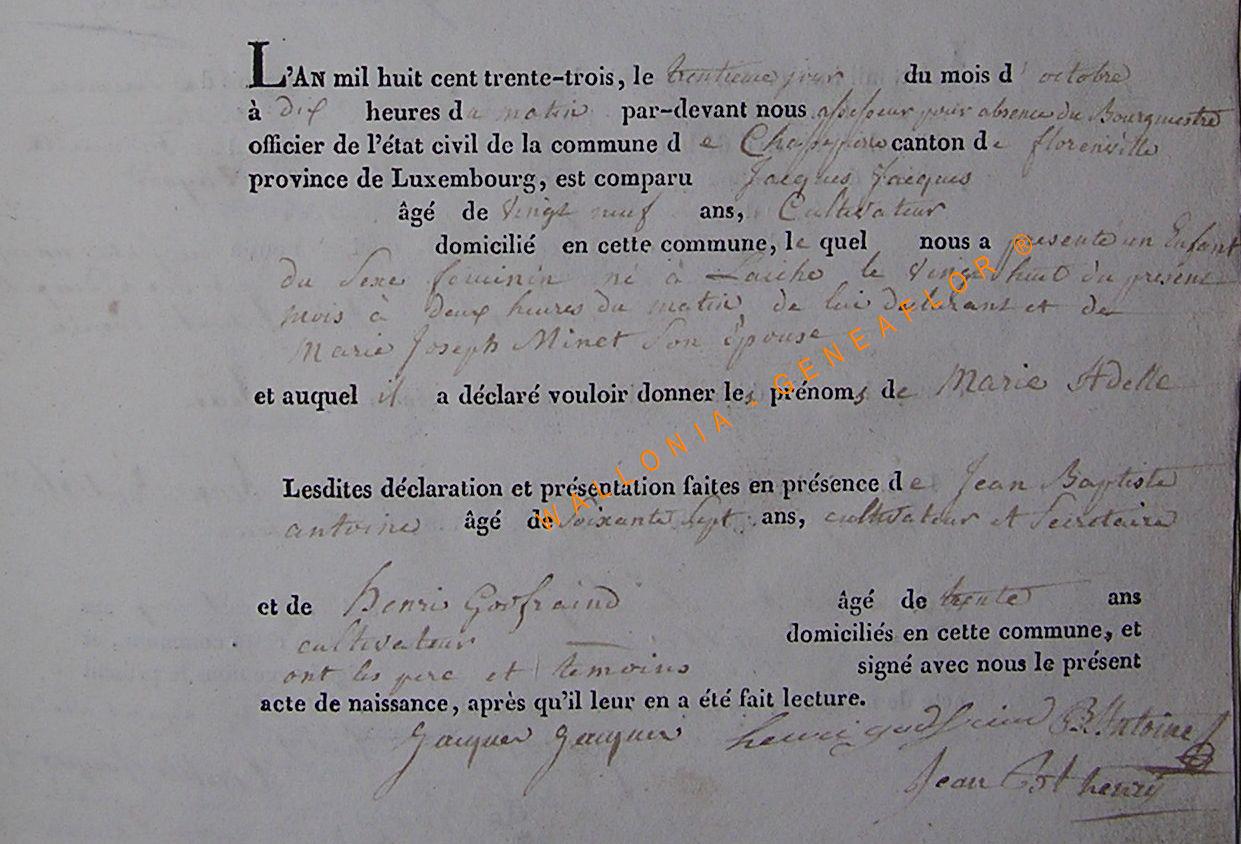 L'AN mil huit cent trente-trois, le trentieme jour du mois d'octobre
à dix heures du matin par-devant nous assesseur pour absence du Bourgmestre
officier de l'état civil de la commune de canton de florenville
province de Luxembourg, est comparu Jacques Jacques
âgé de vingt neuf ans, Cultivateur
domicilié en cette commune, le quel nous a presenté un Enfant
du Sexe feminin né à le vingt huit du present
mois à deux heures du matin, de lui declarant et de
Marie Joseph Minet Son Epouse
et auquel il a déclaré vouloir donner les prénoms de Marie Adelle
Lesdites déclaration et présentation faites en présence de Jean Baptiste
antoine âgé de soixante sept ans, cultivateur et Secretaire
et de henri Godfraind âgé de trente ans
cultivateur domiciliés en cette commune, et
ont les pere et temoins signé avec nous le présent
acte de naissance, après qu'il leur en a été fait lecture.
Jacques Jacques henri godfraind B. Antoine
Jean Bst henri
WALLONIA - GENEAFLOR ®